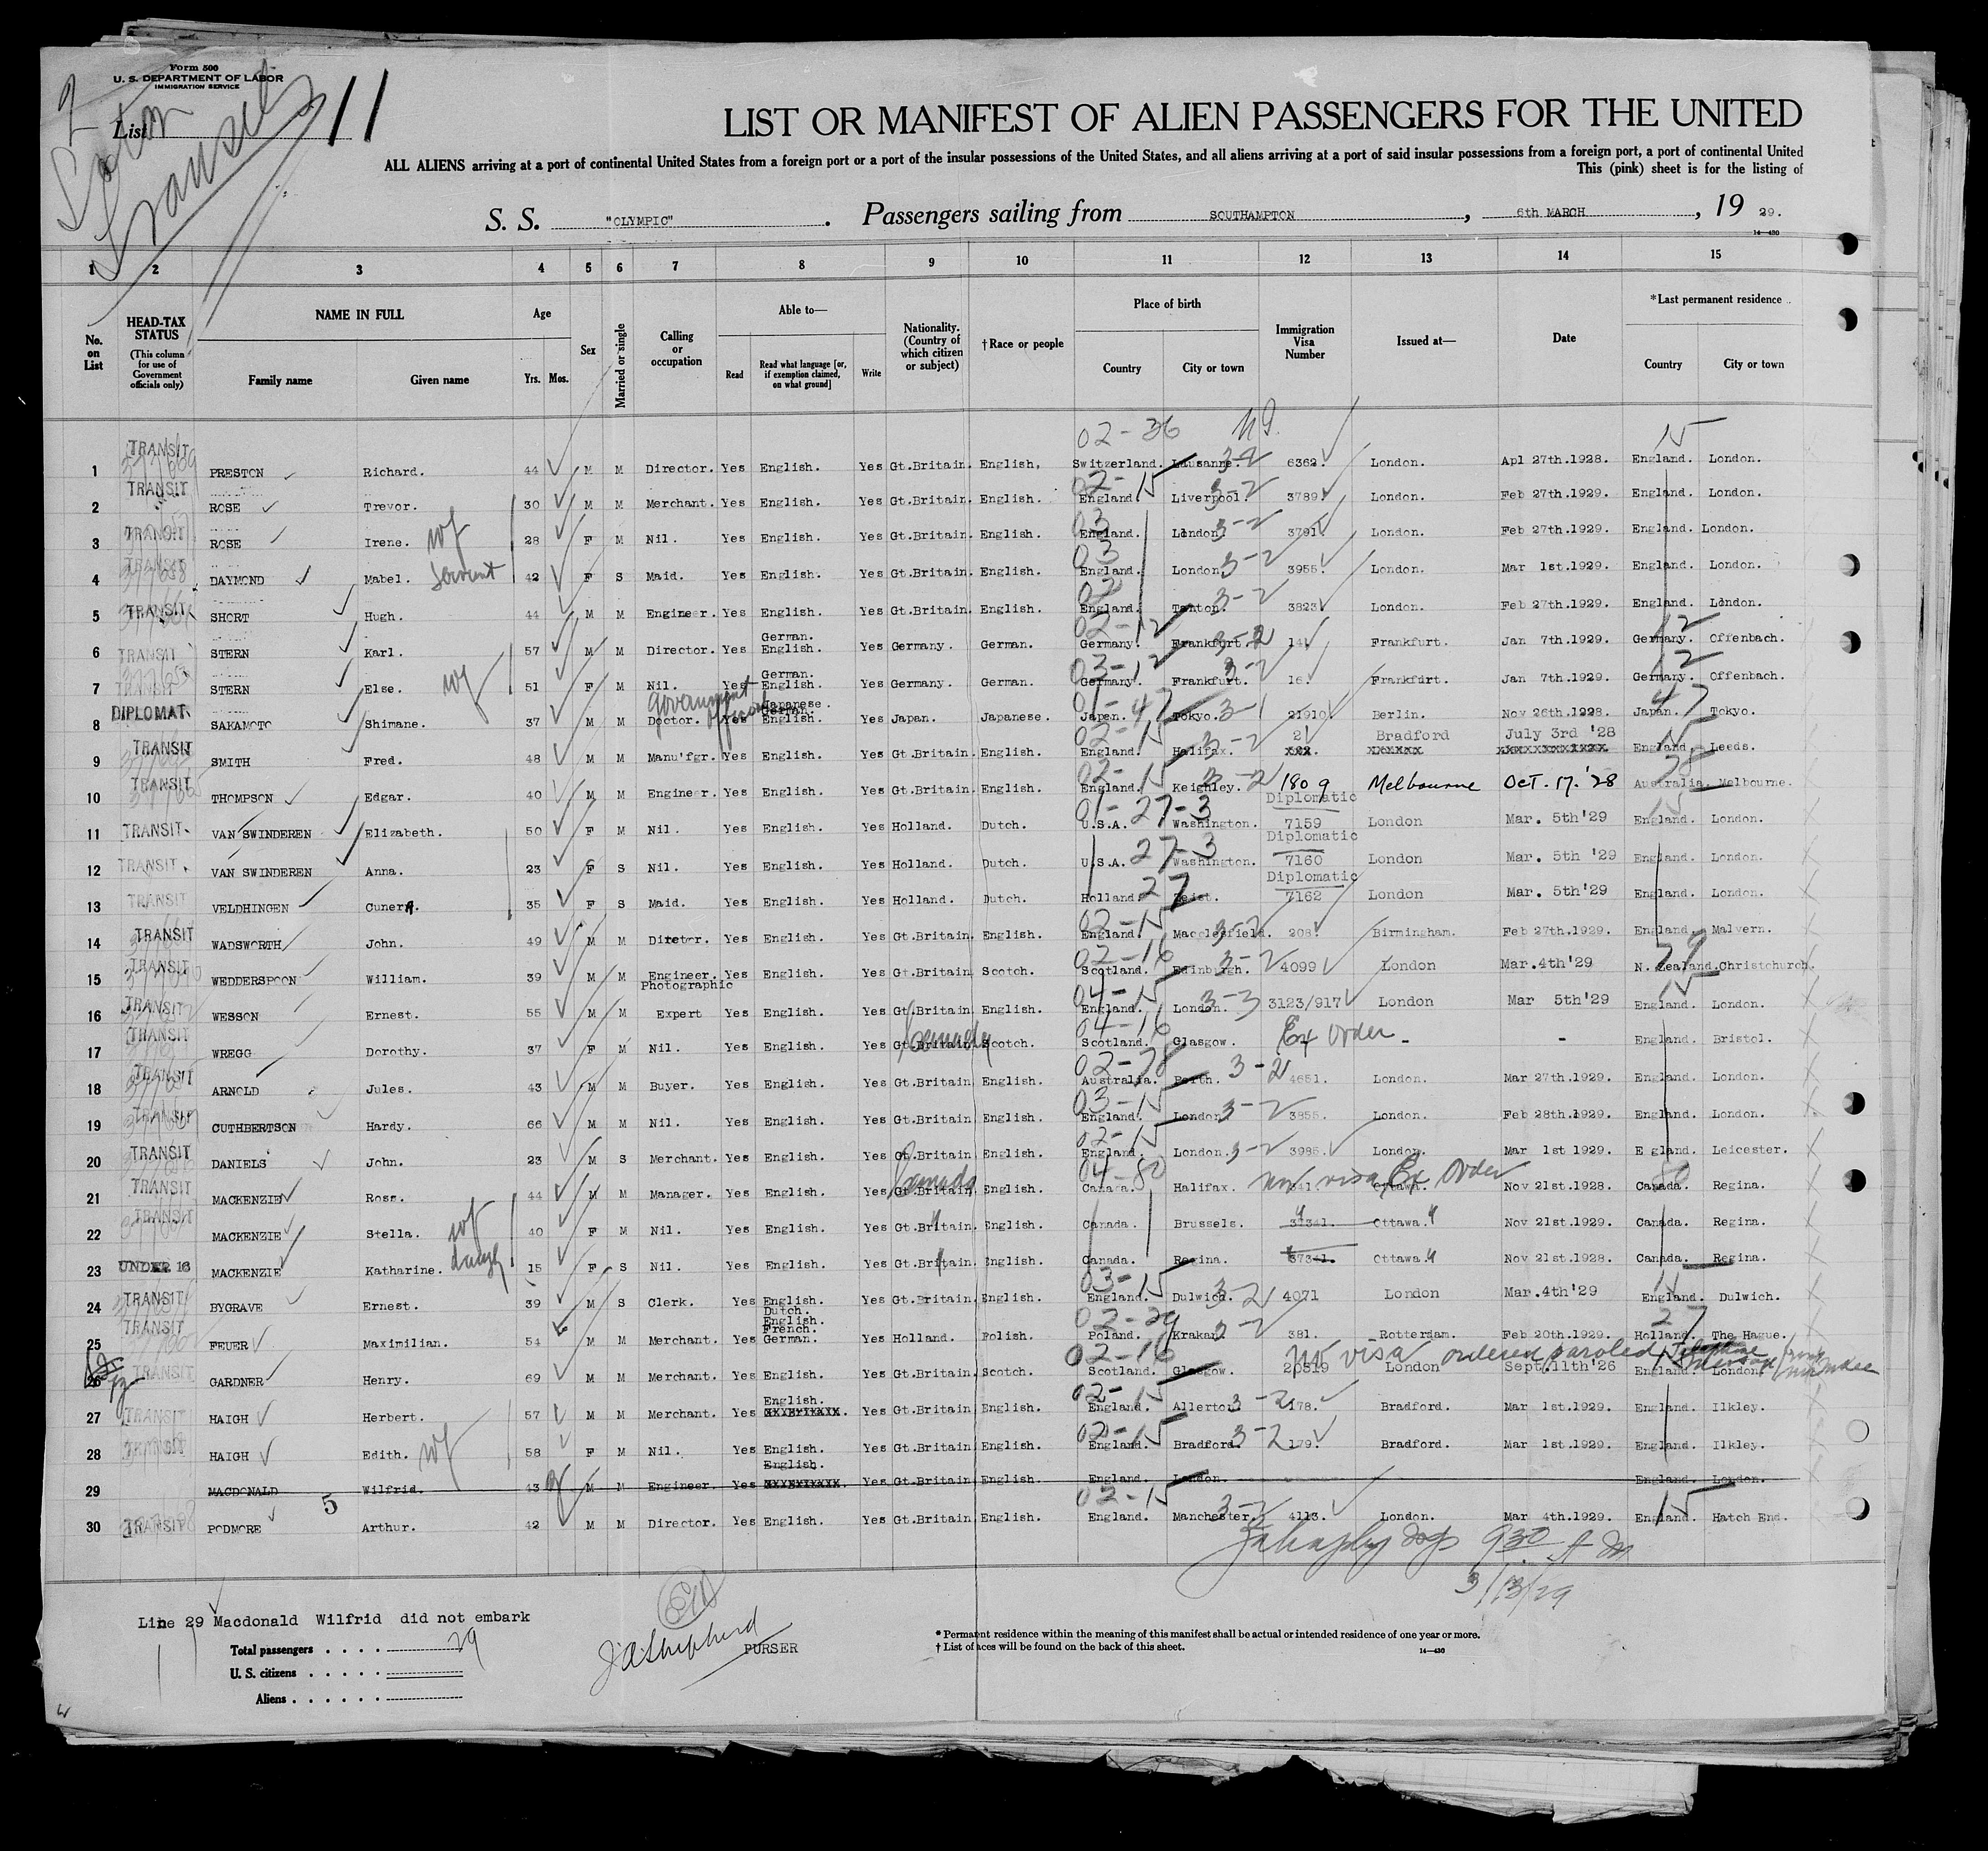 Form 500
U. S. DEPARTMENT OF LABOR
IMMIGRATION SERVICE
2
List 11
LIST OR MANIFEST OF ALIEN PASSENGERS FOR THE UNITED
ALL ALIENS arriving at a port of continental United States from a foreign port or a port of the insular possessions of the United States, and all aliens arriving at a port of said insular possessions from a foreign port, a port of continental United
This (pink) sheet is for the listing of
S. S. "OLYMPIC". Passengers sailing from SOUTHAMPTON, 6th MARCH, 19 29.
14—430
1 2 3 4 5 6 7 8 9 10 11 12 13 14 15
No. on List
HEAD-TAX STATUS (This column for use of Government officials only)
NAME IN FULL Family name Given name
Age Yrs. Mos.
Sex
Married or single
Calling or occupation
Able to— Read Read what language [or, if exemption claimed, on what ground] Write
Nationality. (Country of which citizen or subject)
†Race or people
Place of birth Country City or town
Immigration Visa Number
Issued at—
Date
*Last permanent residence Country City or town
02-36 15
1 TRANSIT PRESTON Richard. 44 M M Director. Yes English. Yes Gt.Britain. English. Switzerland. Lausanne. 6362. London. Apl 27th.1928. England. London.
2 TRANSIT ROSE Trevor. 30 M M Merchant. Yes English. Yes Gt.Britain. English. England. Liverpool. 3789. London. Feb 27th.1929. England. London.
3 TRANSIT ROSE Irene. wf 28 F M Nil. Yes English. Yes Gt.Britain. English. England. London. 3791. London. Feb 27th.1929. England. London.
4 TRANSIT DAYMOND Mabel. servant 42 F S Maid. Yes English. Yes Gt.Britain. English. England. London. 3955. London. Mar 1st.1929. England. London.
5 TRANSIT SHORT Hugh. 44 M M Engineer. Yes English. Yes Gt.Britain. English. England. Tanton. 3823. London. Feb 27th.1929. England. London.
6 TRANSIT STERN Karl. 57 M M Director. Yes German. English. Yes Germany. German. Germany. Frankfurt. 14. Frankfurt. Jan 7th.1929. Germany. Offenbach.
7 TRANSIT STERN Else. wf 51 F M Nil. Yes German. English. Yes Germany. German. Germany. Frankfurt. 16. Frankfurt. Jan 7th.1929. Germany. Offenbach.
8 DIPLOMAT. SAKAMOTO Shimane. 37 M M Doctor. Government official Yes Japanese. German. English. Yes Japan. Japanese. Japan. Tokyo. 21910. Berlin. Nov 26th.1928. Japan. Tokyo.
9 TRANSIT SMITH Fred. 48 M M Manu'fgr. Yes English. Yes Gt.Britain. English. England. Halifax. 21 Bradford July 3rd '28 England. Leeds.
10 TRANSIT THOMPSON Edgar. 40 M M Engineer. Yes English. Yes Gt.Britain. English. England. Keighley. 1809 Melbourne Oct. 17. '28 Australia. Melbourne.
11 TRANSIT VAN SWINDEREN Elizabeth. 50 F M Nil. Yes English. Yes Holland. Dutch. U.S.A. Washington. Diplomatic 7159 London Mar. 5th'29 England. London.
12 TRANSIT VAN SWINDEREN Anna. 23 F S Nil. Yes English. Yes Holland. Dutch. U.S.A. Washington. Diplomatic 7160 London Mar. 5th '29 England. London.
13 TRANSIT VELDHINGEN Cunera. 35 F S Maid. Yes English. Yes Holland. Dutch. Holland. Zeist. Diplomatic 7162 London Mar. 5th'29 England. London.
14 TRANSIT WADSWORTH John. 49 M M Director. Yes English. Yes Gt.Britain. English. England. Macclesfield. 208. Birmingham. Feb 27th.1929. England. Malvern.
15 TRANSIT WEDDERSPOON William. 39 M M Engineer. Yes English. Yes Gt.Britain. Scotch. Scotland. Edinburgh. 4099 London Mar.4th'29 N. Zealand. Christchurch.
16 TRANSIT WESSON Ernest. 55 M M Photographic Expert Yes English. Yes Gt.Britain. English. England. London. 3123/917 London Mar 5th'29 England. London.
17 TRANSIT WREGG Dorothy. 37 F M Nil. Yes English. Yes Gt.Britain. Canada Scotch. Scotland. Glasgow. Ex Order - - England. Bristol.
18 TRANSIT ARNOLD Jules. 43 M M Buyer. Yes English. Yes Gt.Britain. English. Australia. Perth. 4651. London. Mar 27th.1929. England. London.
19 TRANSIT CUTHBERTSON Hardy. 66 M M Nil. Yes English. Yes Gt.Britain. English. England. London. 3855. London. Feb 28th.1929. England. London.
20 TRANSIT DANIELS John. 23 M S Merchant. Yes English. Yes Gt.Britain. English. England. London. 3985. London. Mar 1st 1929. E gland. Leicester.
21 TRANSIT MACKENZIE Ross. 44 M M Manager. Yes English. Yes Gt.Britain. Canada English. Canada. Halifax. no visa Ex Order Ottawa. Nov 21st.1928. Canada. Regina.
22 TRANSIT MACKENZIE Stella. wf 40 F M Nil. Yes English. Yes Gt.Britain. English. Canada. Brussels. Ottawa. Nov 21st.1929. Canada. Regina.
23 UNDER 16 MACKENZIE Katharine. daugh 15 F S Nil. Yes English. Yes Gt.Britain. English. Canada. Regina. 37341. Ottawa. Nov 21st.1928. Canada. Regina.
24 TRANSIT BYGRAVE Ernest. 39 M S Clerk. Yes English. Yes Gt.Britain. English. England. Dulwich. 4071 London Mar.4th'29 England. Dulwich.
25 TRANSIT FEUER Maximilian. 54 M M Merchant. Yes Dutch. English. French. German. Yes Holland. Polish. Poland. Krakau. 381. Rotterdam. Feb 20th.1929. Holland. The Hague.
no visa ordered paroled
26 TRANSIT GARDNER Henry. 69 M M Merchant. Yes English. Yes Gt.Britain. Scotch. Scotland. Glasgow. 20519 London Sept.11th'26 England. London.
27 TRANSIT HAIGH Herbert. 57 M M Merchant. Yes English. Yes Gt.Britain. English. England. Allerton. 178. Bradford. Mar 1st.1929. England. Ilkley.
28 TRANSIT HAIGH Edith. wf 58 F M Nil. Yes English. Yes Gt.Britain. English. England. Bradford. 179. Bradford. Mar 1st.1929. England. Ilkley.
29 MACDONALD Wilfrid. 43 M M Engineer. Yes English. Yes Gt.Britain. English. England. London. England. London.
5
30 TRANSIT PODMORE Arthur. 42 M M Director. Yes English. Yes Gt.Britain. English. England. Manchester. 4113. London. Mar 4th.1929. England. Hatch End.
9 30 A M
3/13/29
Line 29 Macdonald Wilfrid did not embark
Total passengers . . . . 29
U. S. citizens . . . . .
Aliens . . . . . .
J A Shepherd PURSER
* Permanent residence within the meaning of this manifest shall be actual or intended residence of one year or more.
† List of aces will be found on the back of this sheet.
14—430